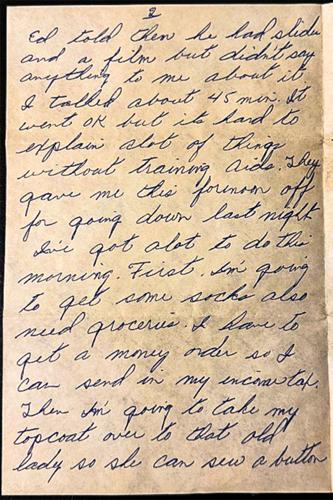 2
Ed told them he had slides
and a film but didn't say
anything to me about it.
I talked about 45 min. It
went OK but its hard to
explain alot of things
without training aids. They
gave me this forenoon off
for going down last night
I've got alot to do this
morning. First. I'm going
to get some socks also
need groceries. I have to
get a money order so I
can send in my income tax.
Then I'm going to take my
topcoat over to that old
lady so she can sew a button